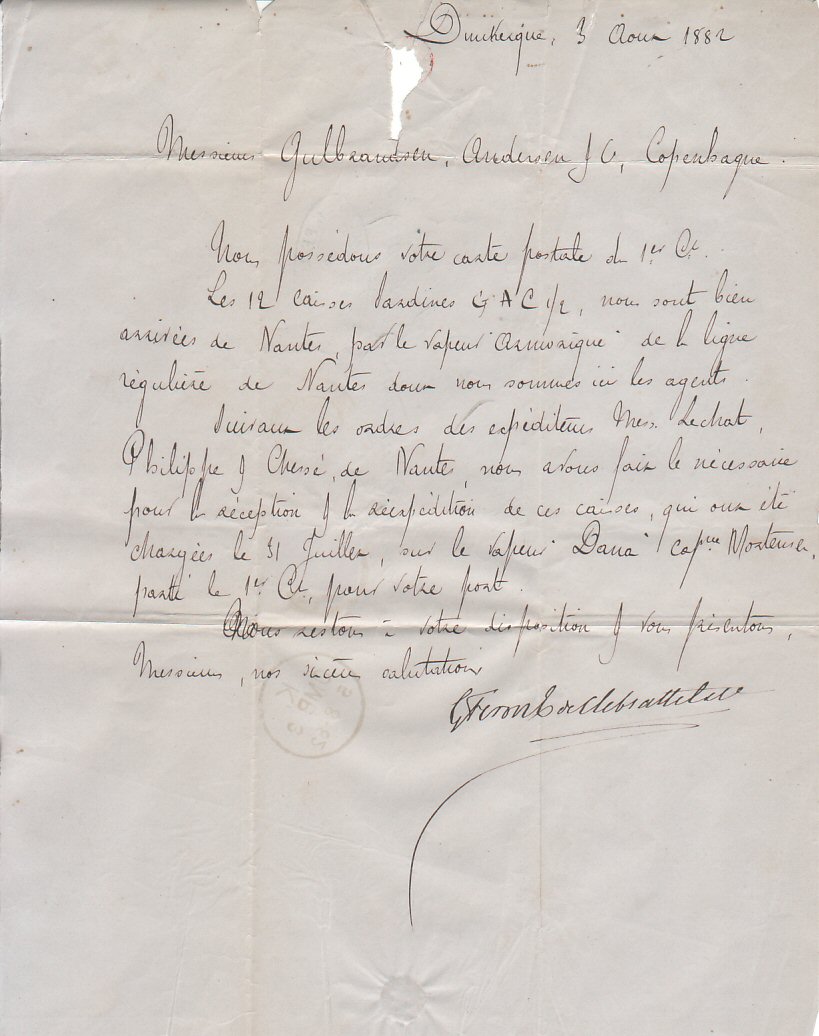 Dunkerque, 3 Aout 1882
Messieurs Gulbrandsen, Andersen & Co, Copenhague.
Nous possédons votre carte postale du 1er Ct.
Les 12 caisses Sardines G A C 1/2, nous sont bien
arrivées de Nantes, par le vapeur "Armorique" de la ligne
régulière de Nantes dont nous sommes ici les agents.
Suivant les ordres des expéditeurs Mess. Lechat,
Philippe & Chessé, de Nantes, nous avons fait le nécessaire
pour la réception & la réexpédition de ces caisses, qui ont été
chargées le 31 Juillet, sur le vapeur "Dana" capne Mortensen,
parti le 1er Ct, pour votre port.
Nous restons à votre disposition & vous présentons,
Messieurs, nos sincères salutations